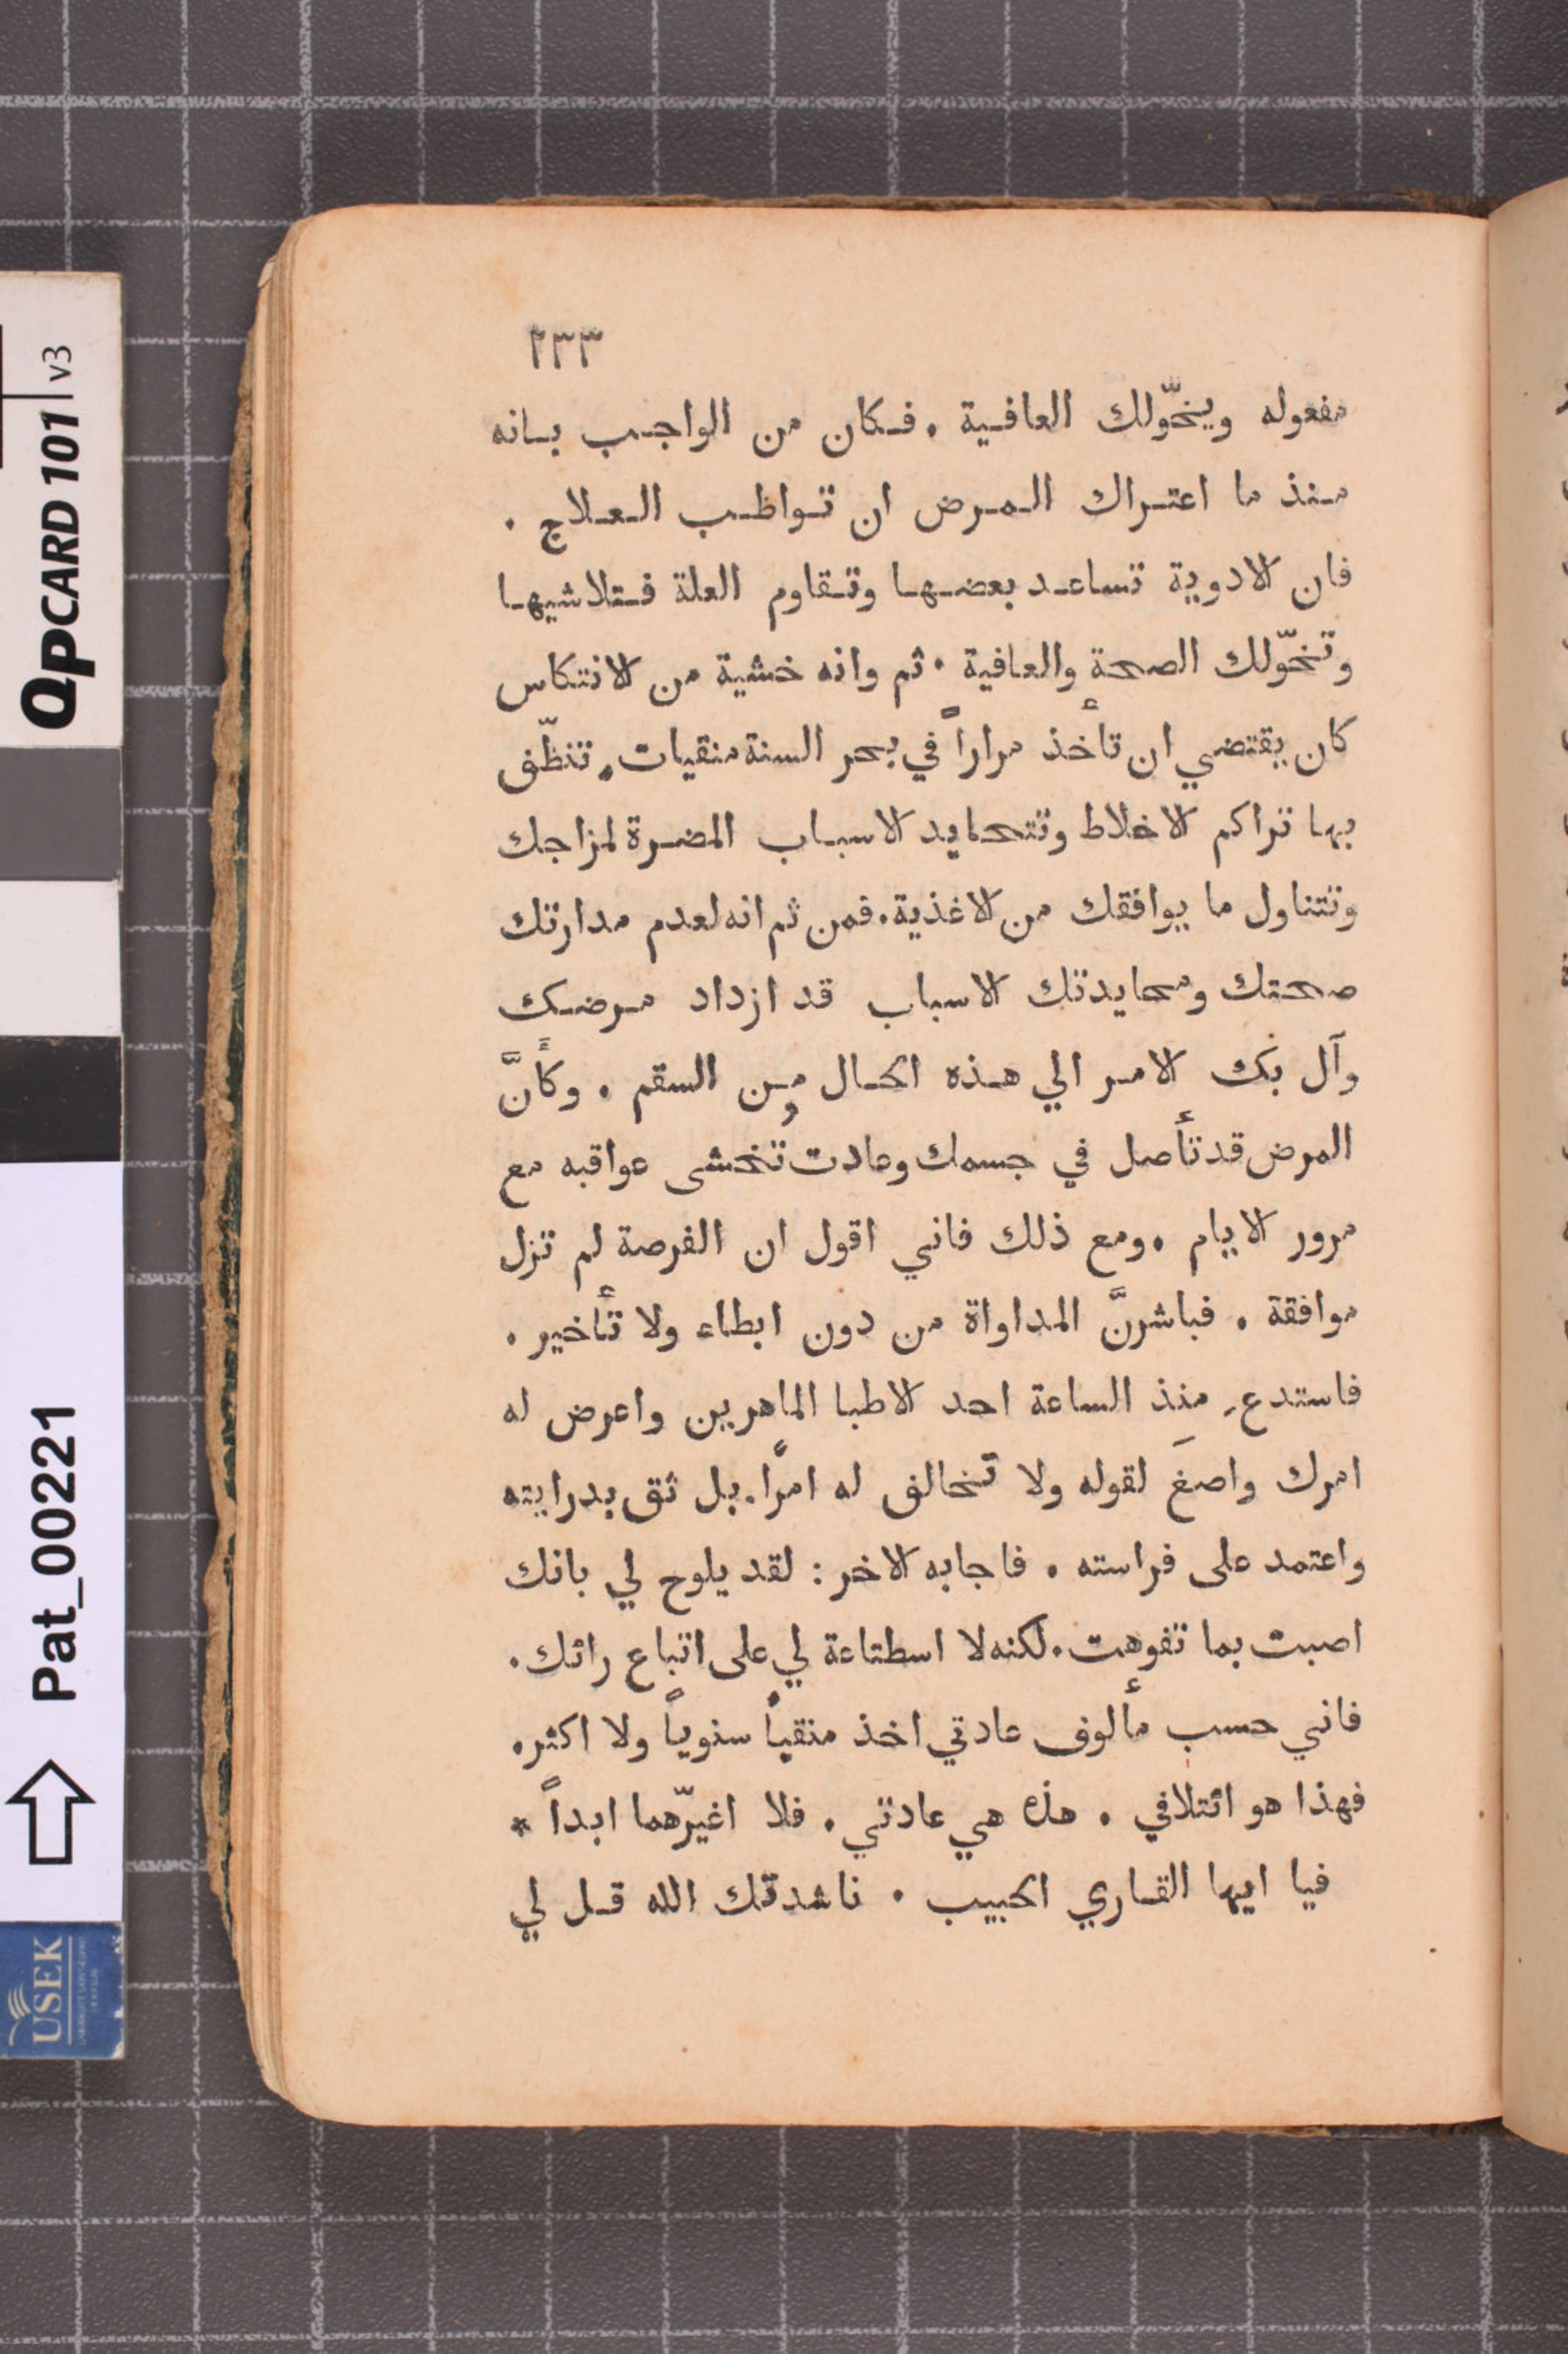 ٢٣٣
مفعوله ويخّولك العافية . فكان من الواجب بانه
منذ ما اعتراك المرض ان تواظب العلاج .
فان الادوية تساعد بعضها وتقاوم العلة فتلاشيها
وتخّولك الصحة والعافية . ثم وانه خشية من الانتكاس
كان يقتضي ان تأخذ مراراً في بحر السنة منقيات . تنظّف
بها تراكم الاخلاط وتتحايد الاسباب المضرة لمزاجك
وتتناول ما يوافقك من الاغذية . فمن ثم انه لعدم مدارتك
صحتك ومحايدتك الاسباب قد ازداد مرضك
وآل بك الامر الي هذه الحال من السقم . وكأَنَّ
المرض قد تأصل في جسمك وعادت تُخشى عواقبه مع
مرور الايام . ومع ذلك فاني اقول ان الفرصة لم تزل
موافقة . فباشرنَّ المداواة من دون ابطاء ولا تأخير .
فاستدعِ منذ الساعة احد الاطبا الماهرين واعرض له
امرك واصغَ لقوله ولا تخالف له امرًا . بل ثق بدرايته
واعتمد على فراسته . فاجابه الاخر : لقد يلوح لي بانك
اصبت بما تفوهت . لكنه لا اسطتاعة لي على اتباع رائك .
فاني حسب مألوف عادتي اخذ منقياً سنوياً ولا اكثر .
فهذا هو ائتلافي . هذه هي عادتي . فلا اغيّرهما ابداً *
فيا ايها القاري الحبيب . ناشدتك الله قل لي
QPCARD 101 v3
Pat_00221
USEK